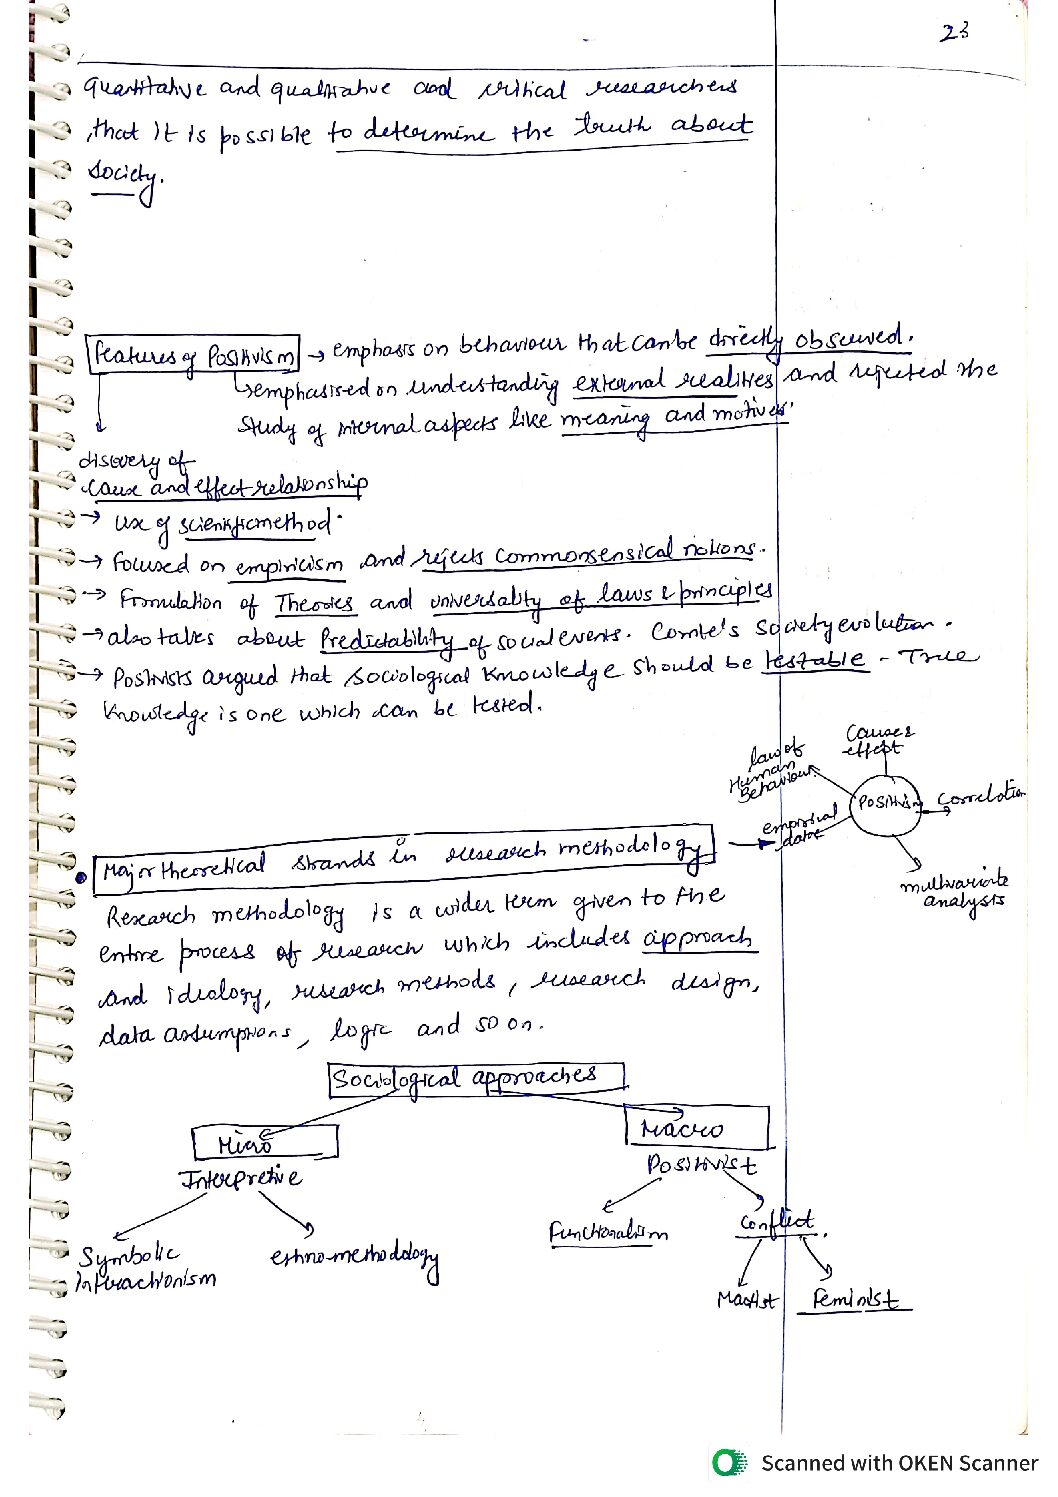 23
quantitative and qualitative and critical researchers
, that it is possible to determine the truth about
society.
features of Positivism → emphasis on behaviour that can be directly observed.
↳ emphasised on understanding external realities and rejected the
study of internal aspects like meaning and motives.
discovery of
cause and effect relationship
→ use of scientific method.
→ focused on empiricism and rejects commonsensical notions.
→ Formulation of Theories and universality of laws & principles
→ also talks about Predictability of social events. Comte's Society evolution.
→ Positivists argued that sociological knowledge should be testable - True
knowledge is one which can be tested.
cause & effect
law of Human Behaviour
Positivism
correlation
empirical data
multivariate analysis
Major theoretical strands in research methodology
Research methodology is a wider term given to the
entire process of research which includes approach
and idelogy, research methods, research design,
data assumptions, logic and so on.
Sociological approaches
Micro
Macro
Interpretive
Positivist
Functionalism
Conflict.
Symbolic
interactionism
ethno-methodology
Marxist
Feminist
Scanned with OKEN Scanner